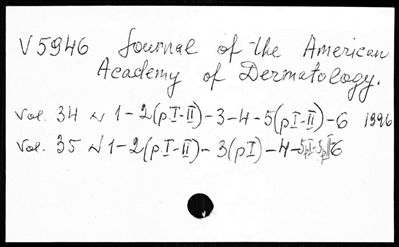 V 5946 Journal of the American
Academy of Dermatology.
Vol. 34 N 1-2(p.I-II)-3-4-5(pI-II)-6 1996
Vol. 35 N 1-2(p.I-II)-3(pI)-4-5pI-5pII-6